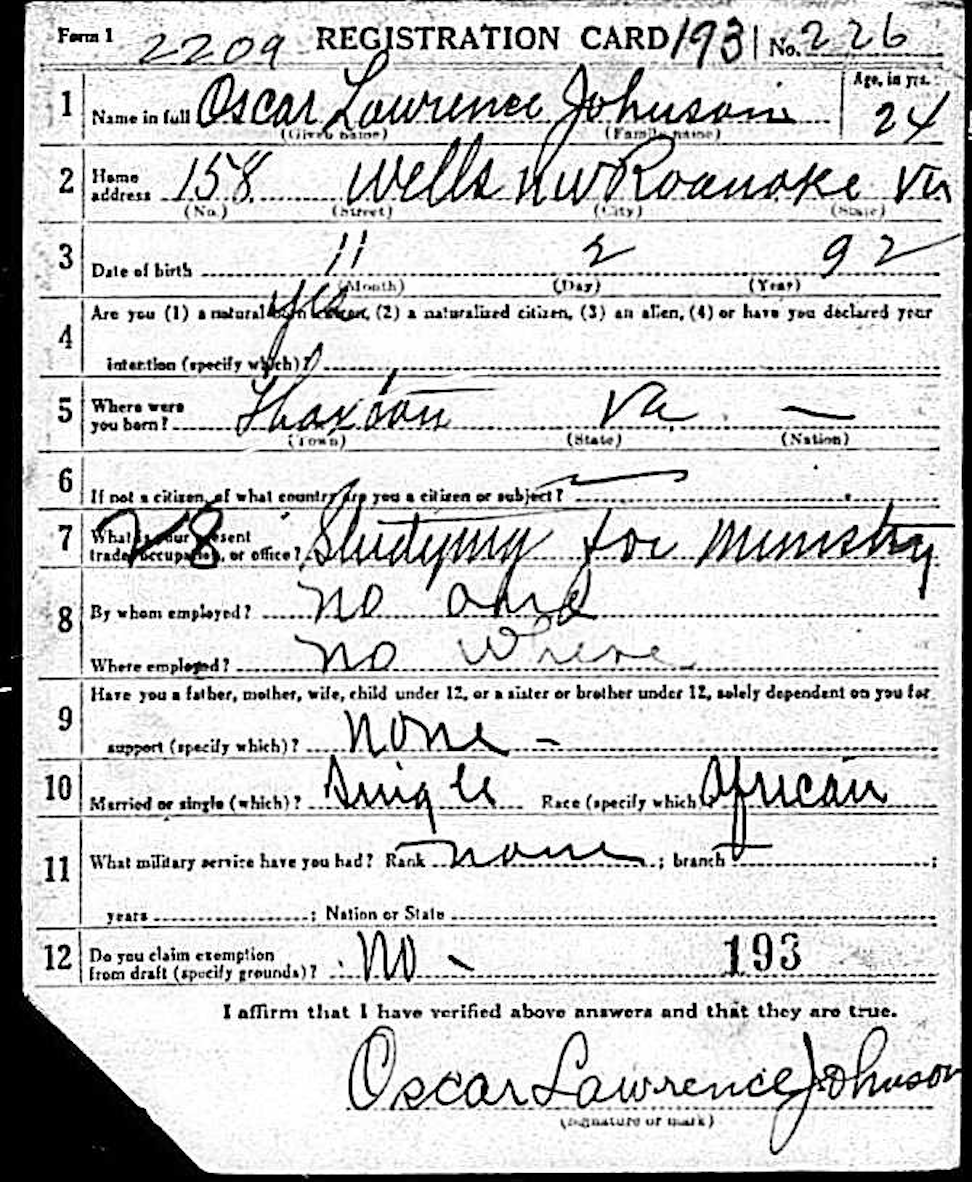 Form 1 2209 REGISTRATION CARD 193 No. 226
1 Name in full Oscar Lawrence Johnson Age, in yrs. 24
(Given name) (Family name)
2 Home address 158 Wells NW Roanoke Va
(No.) (Street) (City) (State)
3 Date of birth 11 2 92
(Month) (Day) (Year)
yes
4 Are you (1) a natural born citizen, (2) a naturalized citizen, (3) an alien, (4) or have you declared your
intention (specify which)?
5 Where were you born? Thaxton Va. —
(Town) (State) (Nation)
6 If not a citizen, of what country are you a citizen or subject?
7 What is your present trade, occupation, or office? 28 Studying for ministry
8 By whom employed? no one
Where employed? no where
9 Have you a father, mother, wife, child under 12, or a sister or brother under 12, solely dependent on you for
support (specify which)? None –
10 Married or single (which)? Single Race (specify which) African
11 What military service have you had? Rank none ; branch ;
years ; Nation or State
12 Do you claim exemption from draft (specify grounds)? No - 193
I affirm that I have verified above answers and that they are true.
Oscar Lawrence Johnson
(Signature or mark)